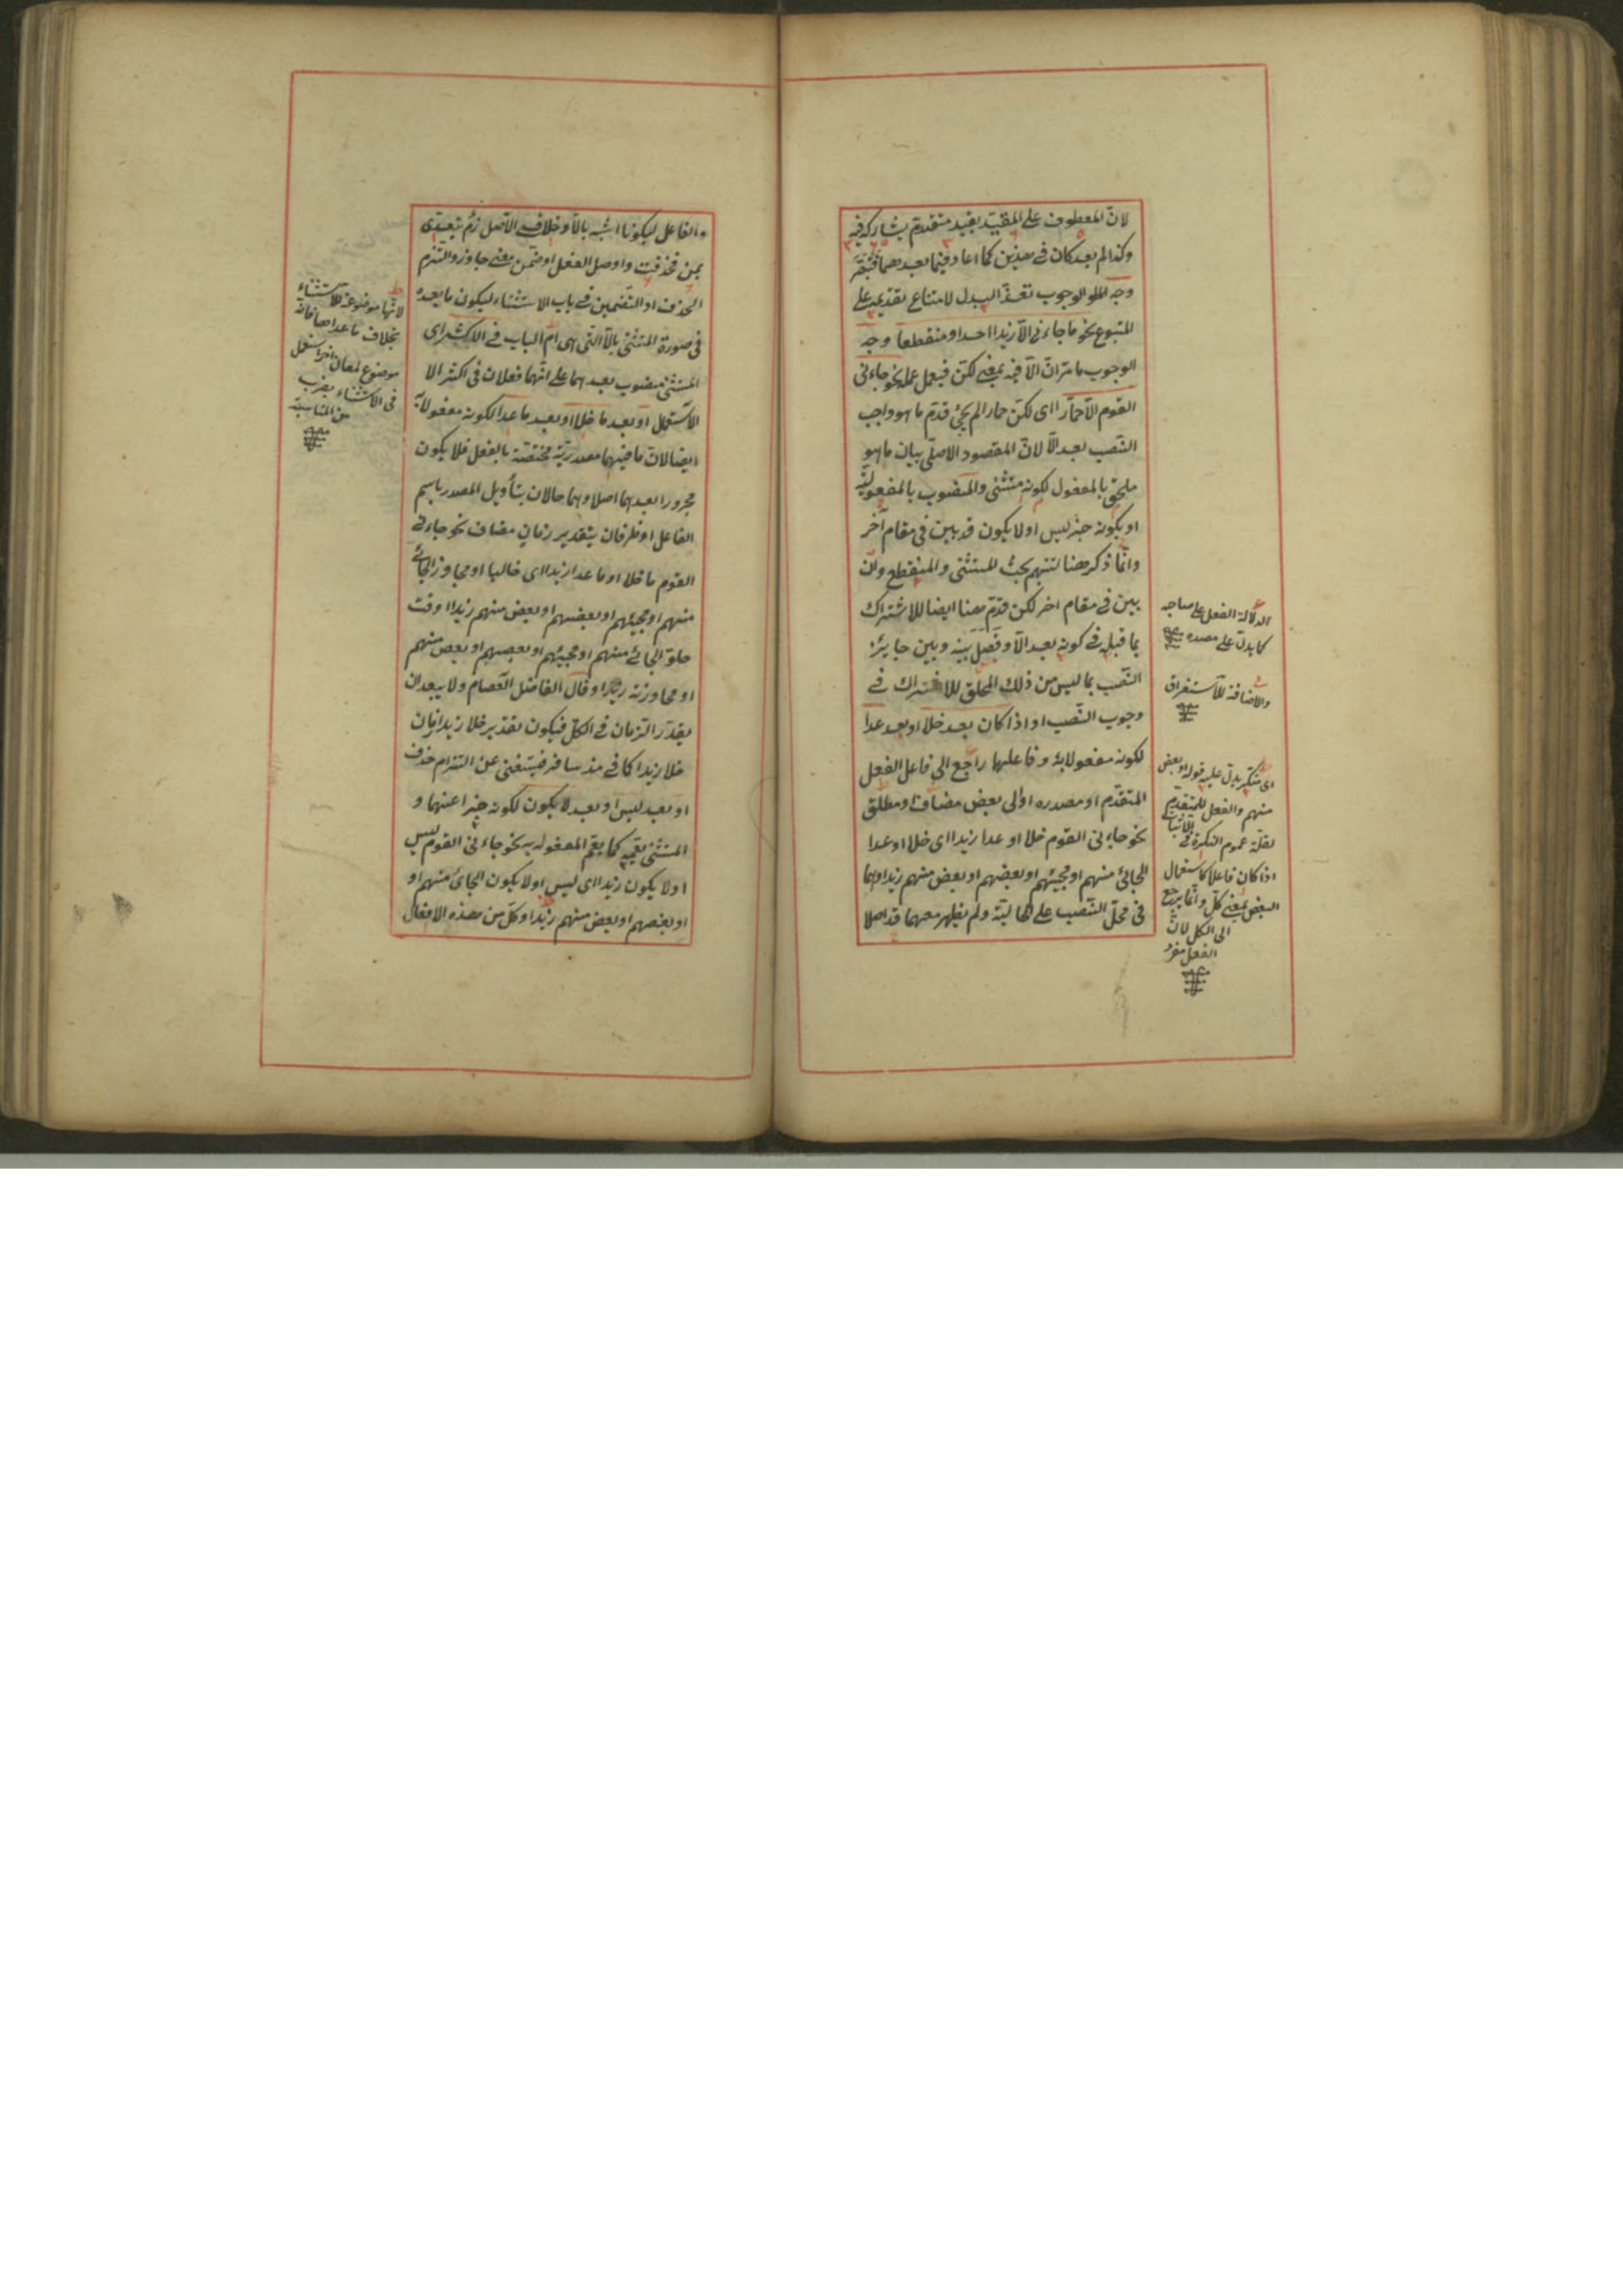 لان المعطوف على المقيد بقيد متقدم يشاركه فيه
وكذا لم يعد كان في هذين كما اعاد فيما بعدهما
وجه الوجوب تعذر البدل لامتناع تقديمه على
المتبوع نحو ما جاءنى الا زيدا احد او منقطعا وجه
الوجوب ما مر ان الا فيه بمعنى لكن فيعمل عمله نحو جاءنى
القوم الا حمارا اى لكن حمارا لم يجئ قدم ما هو واجب
النصب بعد الا لان المقصود الاصلى بيان ما هو
ملحق بالمفعول لكونه مستثنى والمنصوب بالمفعولية
او يكونه خبر ليس او لا يكون قد بين في مقام آخر
وانما ذكر هنا لتتميم بحث المستثنى والمنقطع وان
بين في مقام اخر لكن قدم هنا ايضا للاشتراك
بما قبله في كونه بعد الا وفصل بينه وبين جايز
النصب بما ليس من ذلك المحلق للاشتراك في
وجوب النصب او اذا كان بعد خلا او بعد عدا
لكونه مفعولا به وفاعلها راجع الى فاعل الفعل
المتقدم او مصدره او الى بعض مضاف او مطلق
نحو جاءنى القوم خلا او عدا زيدا اى خلا او عدا
الجائى منهم او مجيئهم او بعضهم او بعض منهم زيدا وهما
في محل النصب على الحالية ولم يظهر معهما قد اصلا
لدلالة الفعل على صاحبه
كما يدل على مصدره
والاضافة للاستغراق
اى منكر يدل عليه قوله او بعض
منهم والفعل المتقدم
لقلة عموم النكرة في الاثبات
اذا كان فاعلا كاستعمال
البعض بمعنى كل وانما يرجع
الى الكل لان
الفعل مفرد
والفاعل ليكونا اشبه بالا وخلا في الاصل لازم يتعدى
بمن فحذفت واوصل الفعل او ضمن معنى جاوز والتزم
الحذف او التضمين في باب الاستثناء ليكون ما بعده
في صورة المستثنى بالا التى هى ام الباب في الاكثر اى
المستثنى منصوب بعدهما على انهما فعلان في اكثر الا
الاستعمال او بعد ما خلا او بعد ما عدا لكونه مفعولا به
ايضا لان ما فيهما مصدرية مختصة بالفعل فلا يكون
مجرورا بعدهما اصلا وهما حالان بتأويل المصدر باسم
الفاعل او ظرفان بتقدير زمان مضاف نحو جاءنى
القوم ما خلا او ما عدا زيدا اى خاليا او مجاوزا الجائى
منهم او مجيئهم او بعضهم او بعض منهم زيدا او وقت
خلو الجائى منهم او مجيئهم او بعضهم او بعض منهم
او مجاوزته زيدا وقال الفاضل العصام ولا يبعد ان
يقدر الزمان في الكل فيكون تقدير خلا زيدا زمان
خلا زيدا كما في مذ سافر فيستغنى عن التزام حذف
او بعد ليس او بعد لا يكون لكونه خبرا عنهما و
المستثنى يعمه كما يعم المفعول به نحو جاءنى القوم ليس
او لا يكون زيدا اى ليس او لا يكون الجائى منهم او
او بعضهم او بعض منهم زيدا وكل من هذه الافعال
لانها موضوعة للاستثناء
بخلاف ما عداها فانه
موضوع لمعان اخر استعمل
في الاستثناء بضرب
من المناسبة